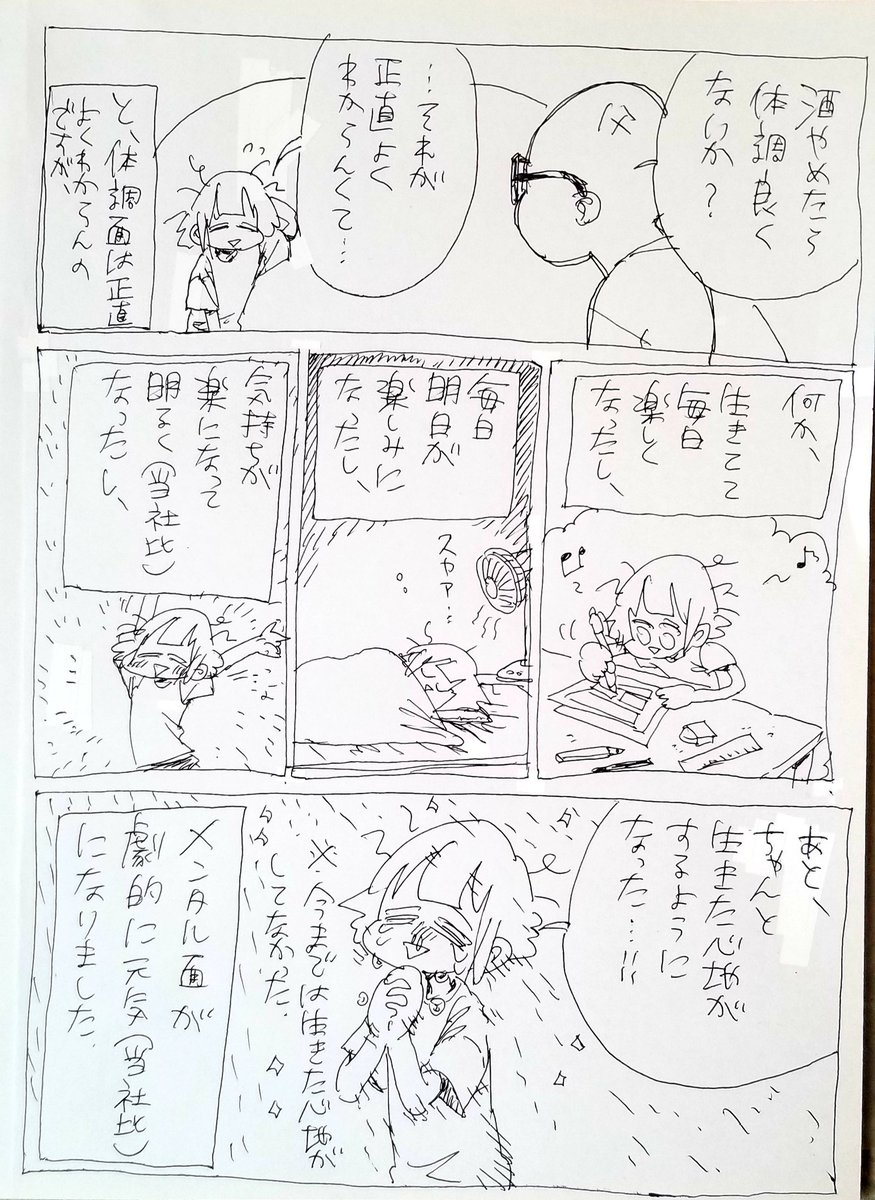 酒やめたら
体調良く
ないか?
父
…それが
正直よく
わからんくて…
と、体調面は正直
よくわからんの
ですが、
何か、
生きてて
毎日
楽しく
なったし、
毎日
明日が
楽しみに
なったし、
スヤァ…
気持ちが
楽になって
明るく(当社比)
なったし、
あと、
ちゃんと
生きた心地が
するように
なった…!!
※今までは生きた心地が
してなかった.
メンタル面が
劇的に元気(当社比)
になりました.